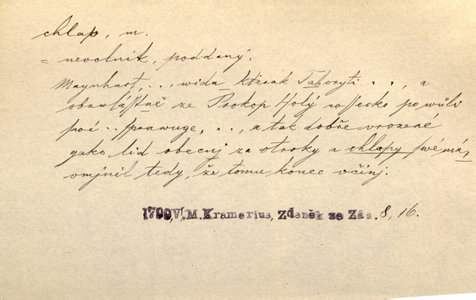 chlap, m.
= nevolník, poddaný.
Maynhart . . . wida kterák Táboryti . . , a
obzwlásstně že Prokop Holý wssecko po wůli
pro . . sprawuge, . . , a tak dobře urozené
gako lid obecný za otroky a chlapy swé má,
vmjnil tedy, že tomu konec včinj.
1799, V. M. Kramerius, Zdeněk ze Zás. 8, 16.